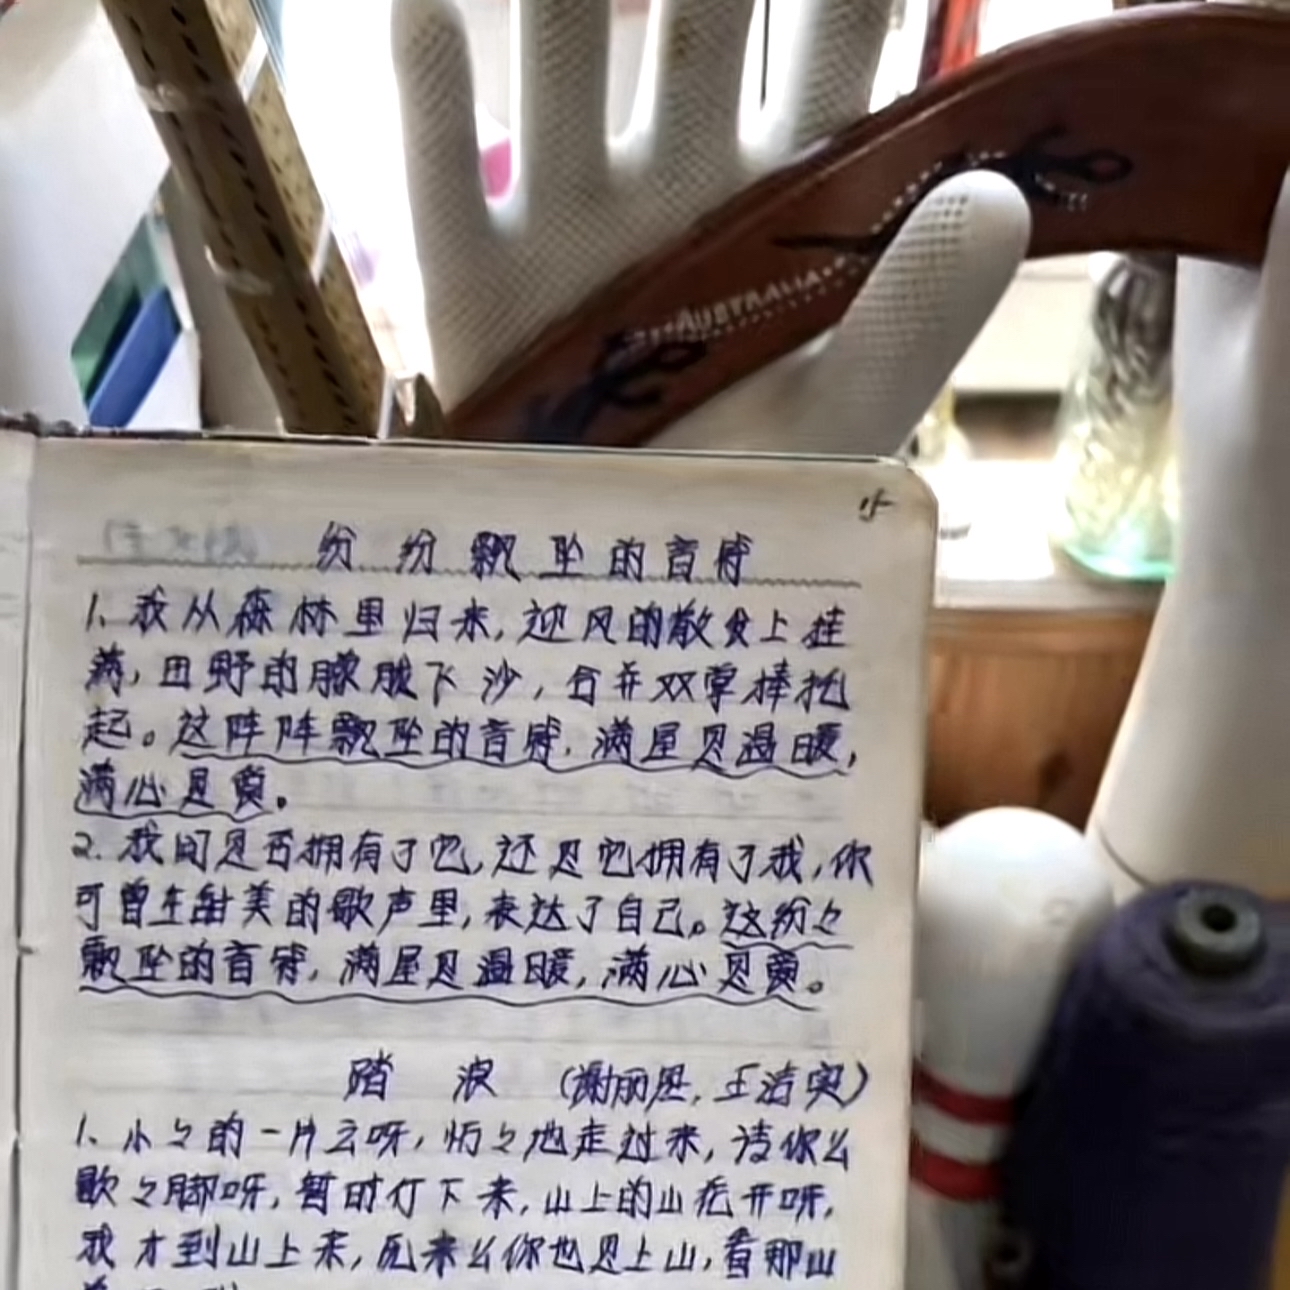 AUSTRALIA
15
纷纷飘坠的音符
1. 我从森林里归来, 迎风的散发上挂
满, 田野的朦胧下沙, 合并双掌捧托
起。这阵阵飘坠的音符, 满屋是温暖,
满心是爱。
2. 我问是否拥有了它, 还是它拥有了我, 你
可曾在甜美的歌声里, 表达了自己。这纷々
飘坠的音符, 满屋是温暖, 满心是爱。
踏浪 (谢丽思, 王洁实)
1. 小々的一片云呀, 悄々地走过来, 请你么
歇々脚呀, 暂时停下来, 山上的山花开呀,
我才到山上来, 原来么你也是上山, 看那山